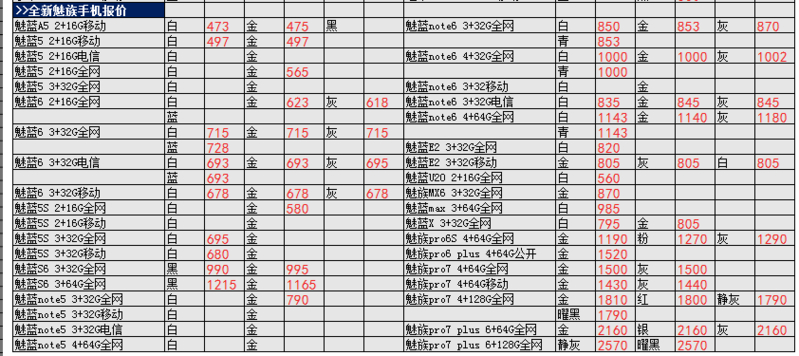 >>全新魅族手机报价
魅蓝A5 2+16G移动 白 473 金 475 黑 魅蓝note6 3+32G全网 白 850 金 853 灰 870
魅蓝5 2+16G移动 白 497 金 497 青 853
魅蓝5 2+16G电信 白 金 魅蓝note6 4+32G全网 白 1000 金 1000 灰 1002
魅蓝5 2+16G全网 白 金 565 青 1000
魅蓝5 3+32G全网 白 金 魅蓝note6 3+32移动 白 金
魅蓝6 2+16G全网 白 金 623 灰 618 魅蓝note6 3+32G电信 白 835 金 845 灰 845
蓝 魅蓝note6 4+64G全网 白 1143 金 1140 灰 1180
魅蓝6 3+32G全网 白 715 金 715 灰 715 青 1143
蓝 728 魅蓝E2 3+32G全网 白 820
魅蓝6 3+32G电信 白 693 金 693 灰 695 魅蓝E2 3+32G移动 金 805 灰 805 白 805
蓝 693 魅蓝U20 2+16G全网 白 560
魅蓝6 3+32G移动 白 678 金 678 灰 678 魅族MX6 3+32G全网 金 870
魅蓝5S 2+16G全网 白 金 580 魅蓝max 3+64G全网 白 985
魅蓝5S 2+16G移动 白 金 魅蓝X 3+32G全网 白 795 金 805
魅蓝5S 3+32G全网 白 695 金 魅族pro6S 4+64G全网 金 1190 粉 1270 灰 1290
魅蓝5S 3+32G移动 白 680 金 魅族pro6 plus 4+64G公开 金 1520
魅蓝S6 3+32G全网 黑 990 金 995 魅族pro7 4+64G全网 金 1500 灰 1500
魅蓝S6 3+64G全网 黑 1215 金 1165 魅族pro7 4+64G移动 金 1430 灰 1440
魅蓝note5 3+32G全网 白 金 790 魅族pro7 4+128G全网 金 1810 红 1800 静灰 1790
魅蓝note5 3+32G移动 白 金 曜黑 1790
魅蓝note5 3+32G电信 白 金 魅族pro7 plus 6+64G全网 金 2160 银 2160 灰 2160
魅蓝note5 4+64G全网 白 金 魅族pro7 plus 6+128G全网 静灰 2570 曜黑 2570